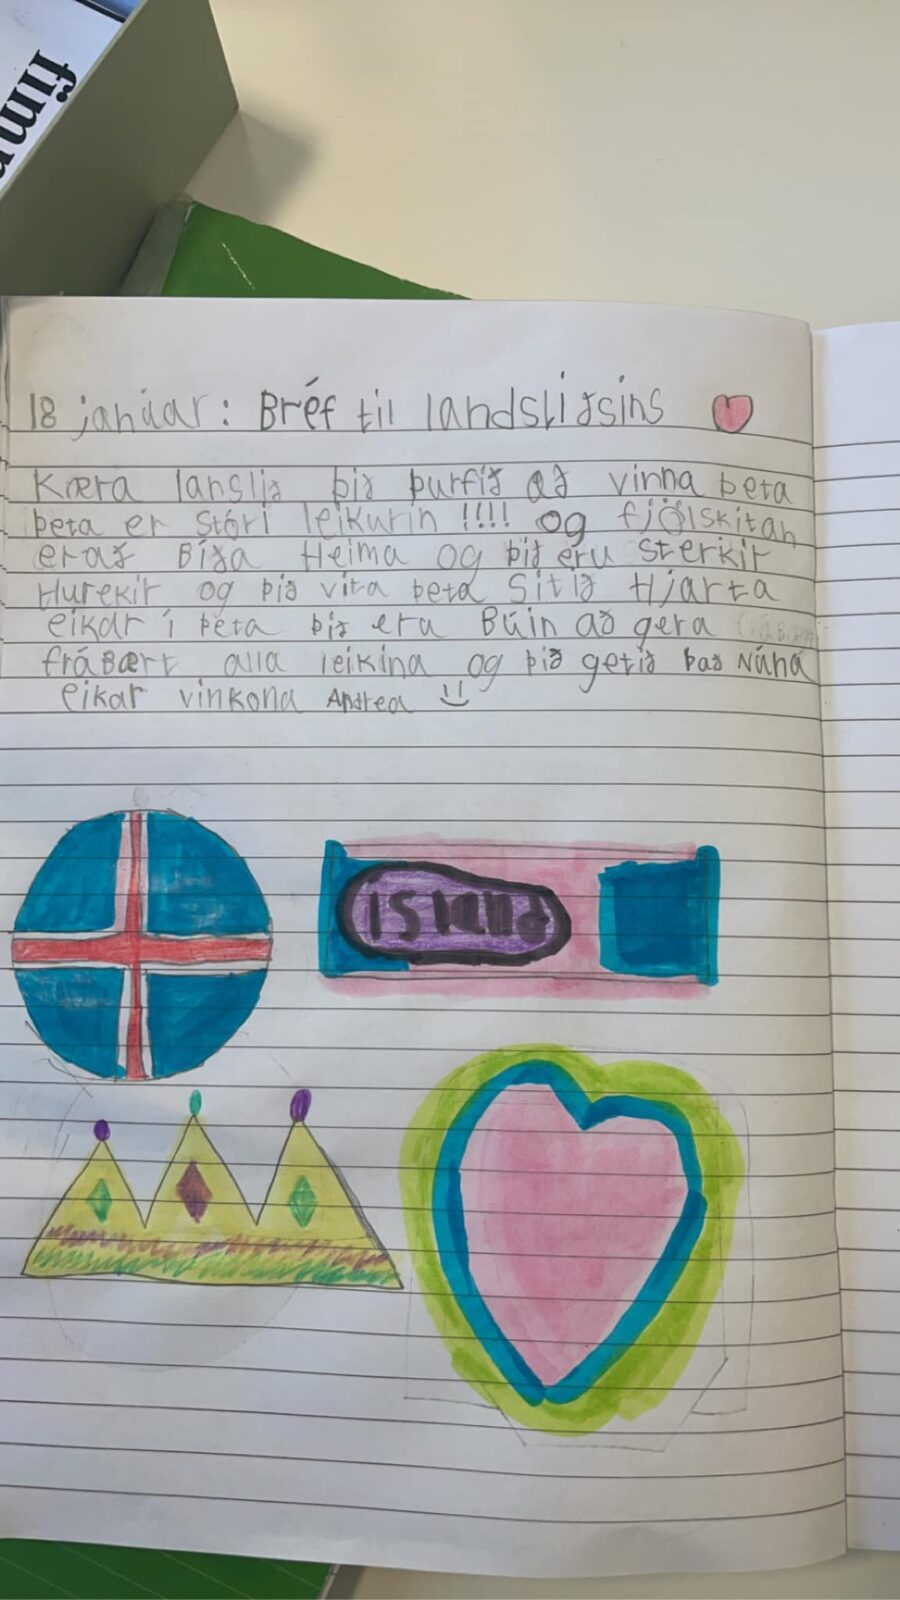 fimm
18 janúar: Bréf til landsliðsins
Kæra lanslið þið þurfið að vinna þeta
þeta er stóri leikurin !!!! og fjölskitan
erað Bíða Heima og þið eru sterkir
Hurekir og þið vita þeta Sitið Hjarta
eikar í þeta þið eru Búin að gera
fráBært alla leikina og þið getið það Núna
eikar vinkona Andrea
ísland